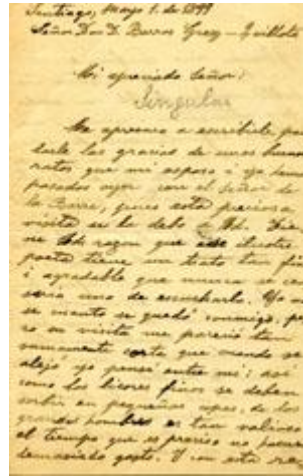 Santiago, Mayo 1. de 1899
Señor Don D. Barros Grez - Quillota
Mi apreciado Señor:
Singular
Me apresuro a escribirle pa
darle las gracias de unos buenos
ratos que mi esposo i yo hemos
pasados ayer con el Señor de
la Barra, pues esta preciosa
visita se la debo a Ud. Tie
ne Ud. razon que ese ilustre
poeta tiene un trato tan fino
i agradable que nunca se ca
saria uno de escucharlo. Yo no
se cuanto se quedó conmigo, pe
ro su visita me pareció tan
sumamente corta que cuando se
alejó yo pensé entre mí: asi
como los licores finos se deben
sorbir en pequeñas copas, de los
grandes hombres es tan valioso
el tiempo que es preciso no hacer
demasiado gasto. I con esta